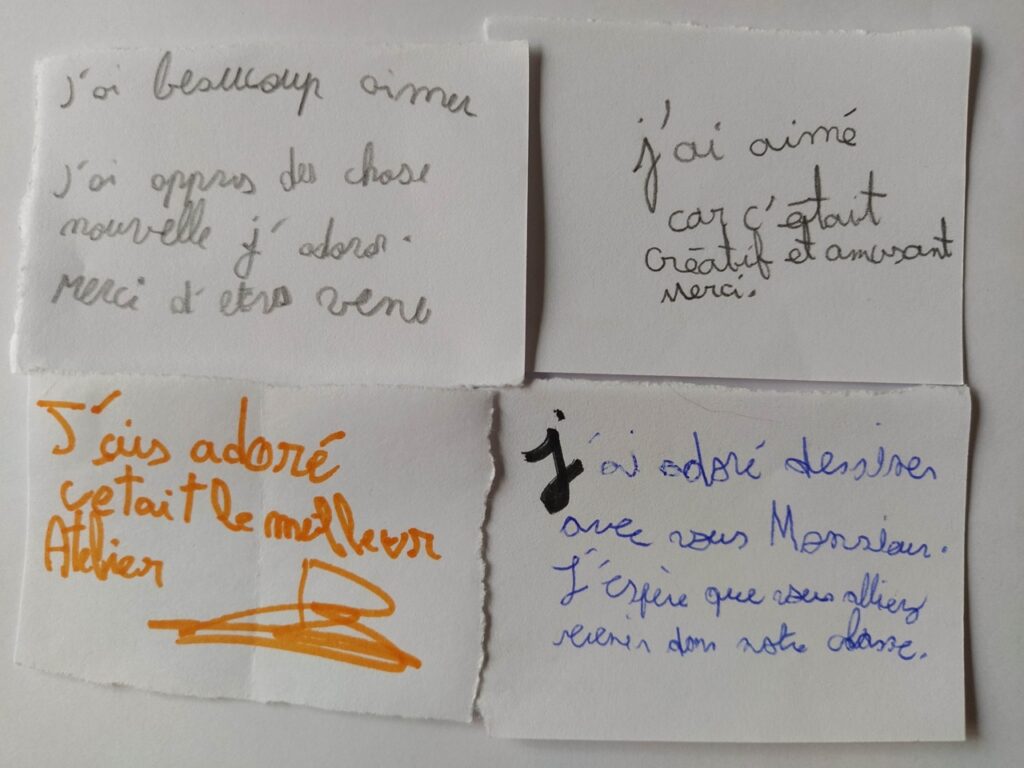 j'ai beaucoup aimer
j'ai appris des chose
nouvelle j'adore.
Merci d'etre venu
j'ai aimé
car c'était
créatif et amusant
Merci.
J'ais adoré
cetait le meilleur
Atelier
j'ai adoré dessiner
avec vous Monsieur.
J'espère que vous alliez
revenir dans notre classe.